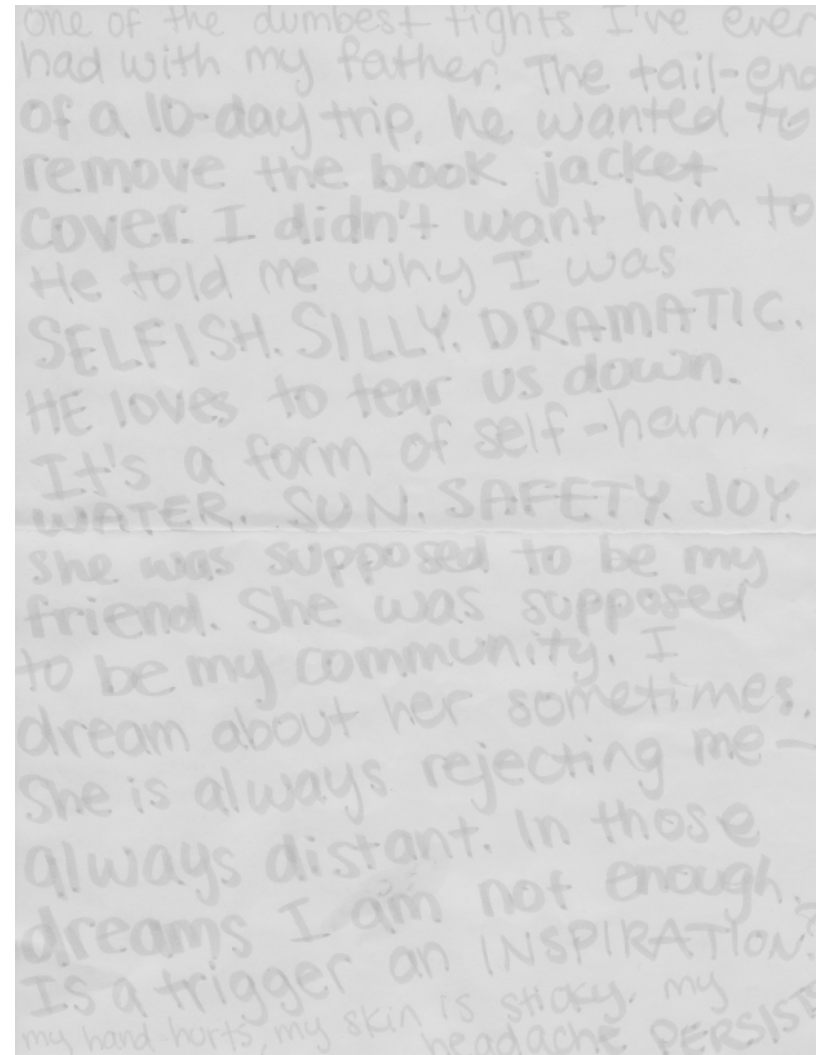 one of the dumbest fights I've ever
had with my father. The tail-end
of a 10-day trip, he wanted to
remove the book jacket
cover. I didn't want him to
He told me why I was
SELFISH. SILLY. DRAMATIC.
HE loves to tear us down.
It's a form of self-harm.
WATER. SUN. SAFETY. JOY.
she was supposed to be my
friend. She was supposed
to be my community. I
dream about her sometimes.
She is always rejecting me—
always distant. In those
dreams I am not enough.
Is a trigger an INSPIRATION?
my hand hurts, my skin is sticky. my
headache PERSISTS